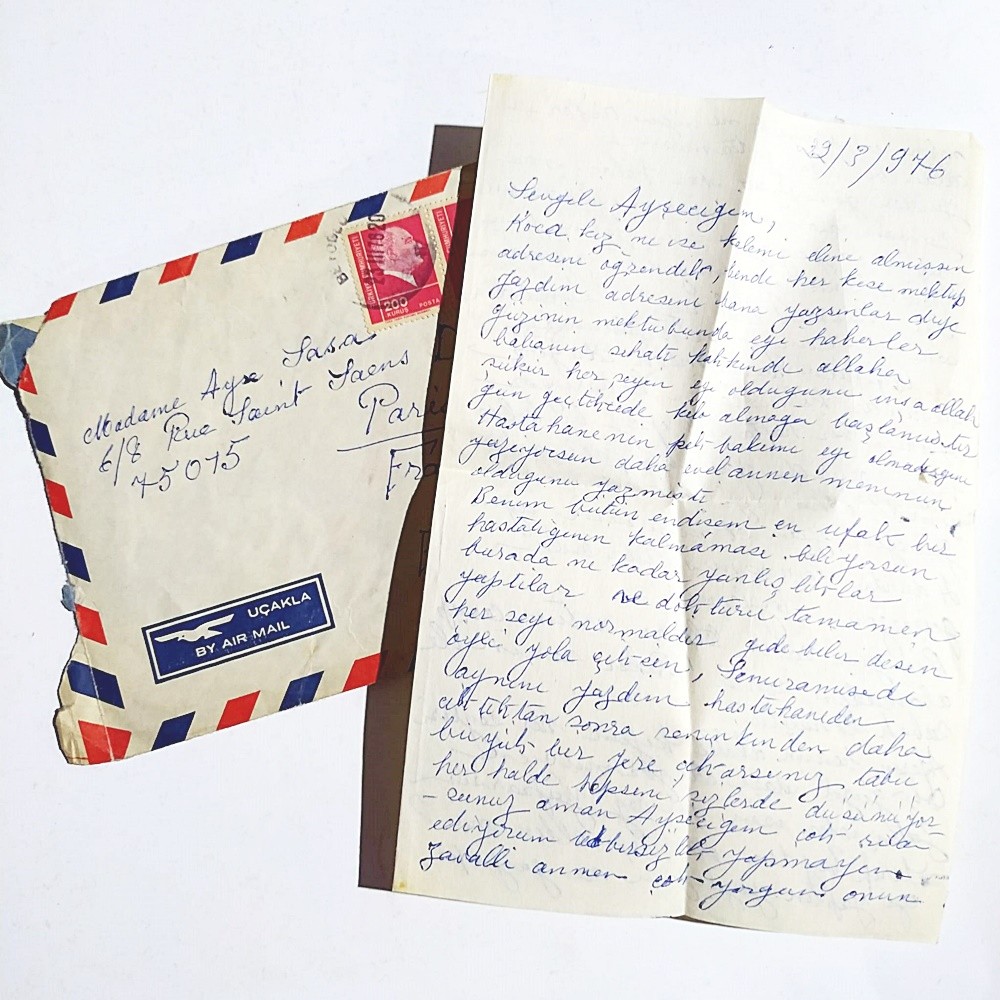 BEYOĞLU
TÜRKİYE CUMHURİYETİ
200
KURUŞ POSTA
Madame Ayşe Sasa
6/8 Rue Saint Saens
75015
Paris
UÇAKLA
BY AIR MAIL
29/3/976
Sevgili Ayşeciğim,
Koca kız ne ise kalemi eline almışsın
adresini öğrendik, bende her kese mektup
yazdım adresini sana yazsınlar diye
mektubunda eyi haberler
babanın sihati hakkında allaha
şükür her şeyin eyi olduğunu inşaallah
gün geçtikcede kilo almağa başlamıştır
Hastahanenin pek bakımı eyi olmadığını
yazıyorsun daha evel annen memnun
olduğunu yazmıştı
Benim bütün endişem en ufak bir
hastalığının kalmaması biliyorsun
burada ne kadar yanlışlıklar
yaptılar ve doktoru tamamen
her şeyi normaldir gidebilir desin
öyle yola çıksın,
aynını yazdım hastahaneden
çıktıktan sonra seninkinden daha
büyük bir yere çıkarsınız tabii
her halde hepsini sizlerde düşünüyor-
-sunuz aman Ayşeciğim çok rica
ediyorum tedbirsizlik yapmayın
Zavallı annen çok yorgun onun